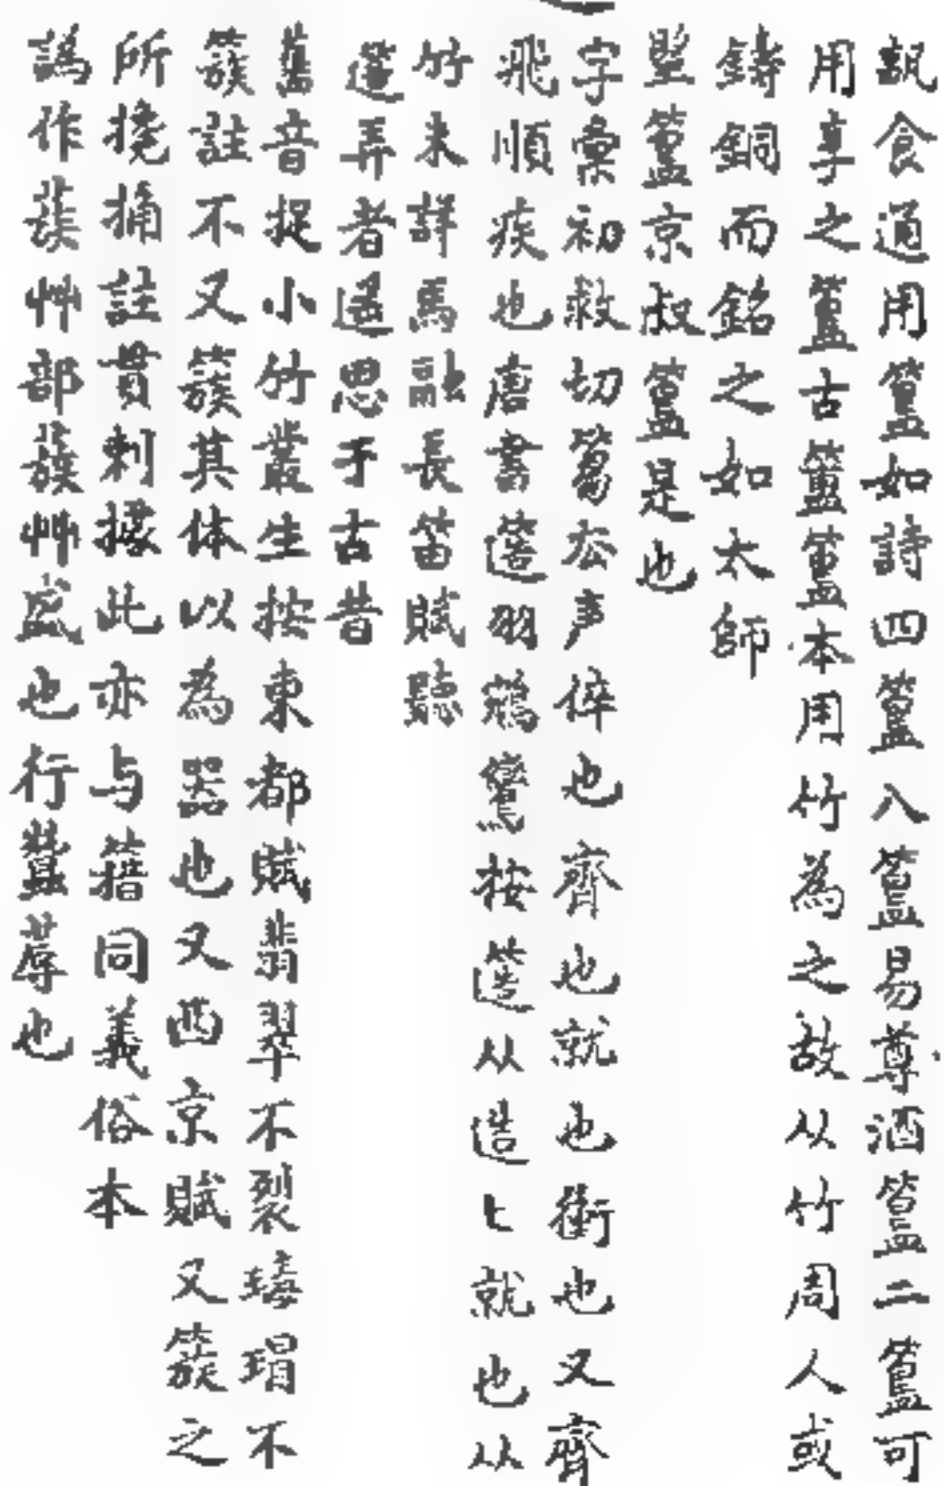 飤食通用簋如詩四簋八簋易尊酒簋二簋可
用享之簋古簠簋本用竹為之故从竹周人或
鋳銅而銘之如太師
望簋京叔簋是也
字彙初救切篘去声倅也齊也就也衝也又齊
飛順疾也唐書簉羽鵷鸞按簉从造匕就也从
竹未詳馬融長笛賦聽
簉弄者遥思于古昔
舊音捉小竹叢生按東都賦翡翠不裂瑇瑁不
簇註不又簇其体以為器也又西京賦又簇之
所搀捅註貫刺據此亦与籍同義俗本
譌作蔟艸部蔟艸盛也行蠶蓐也